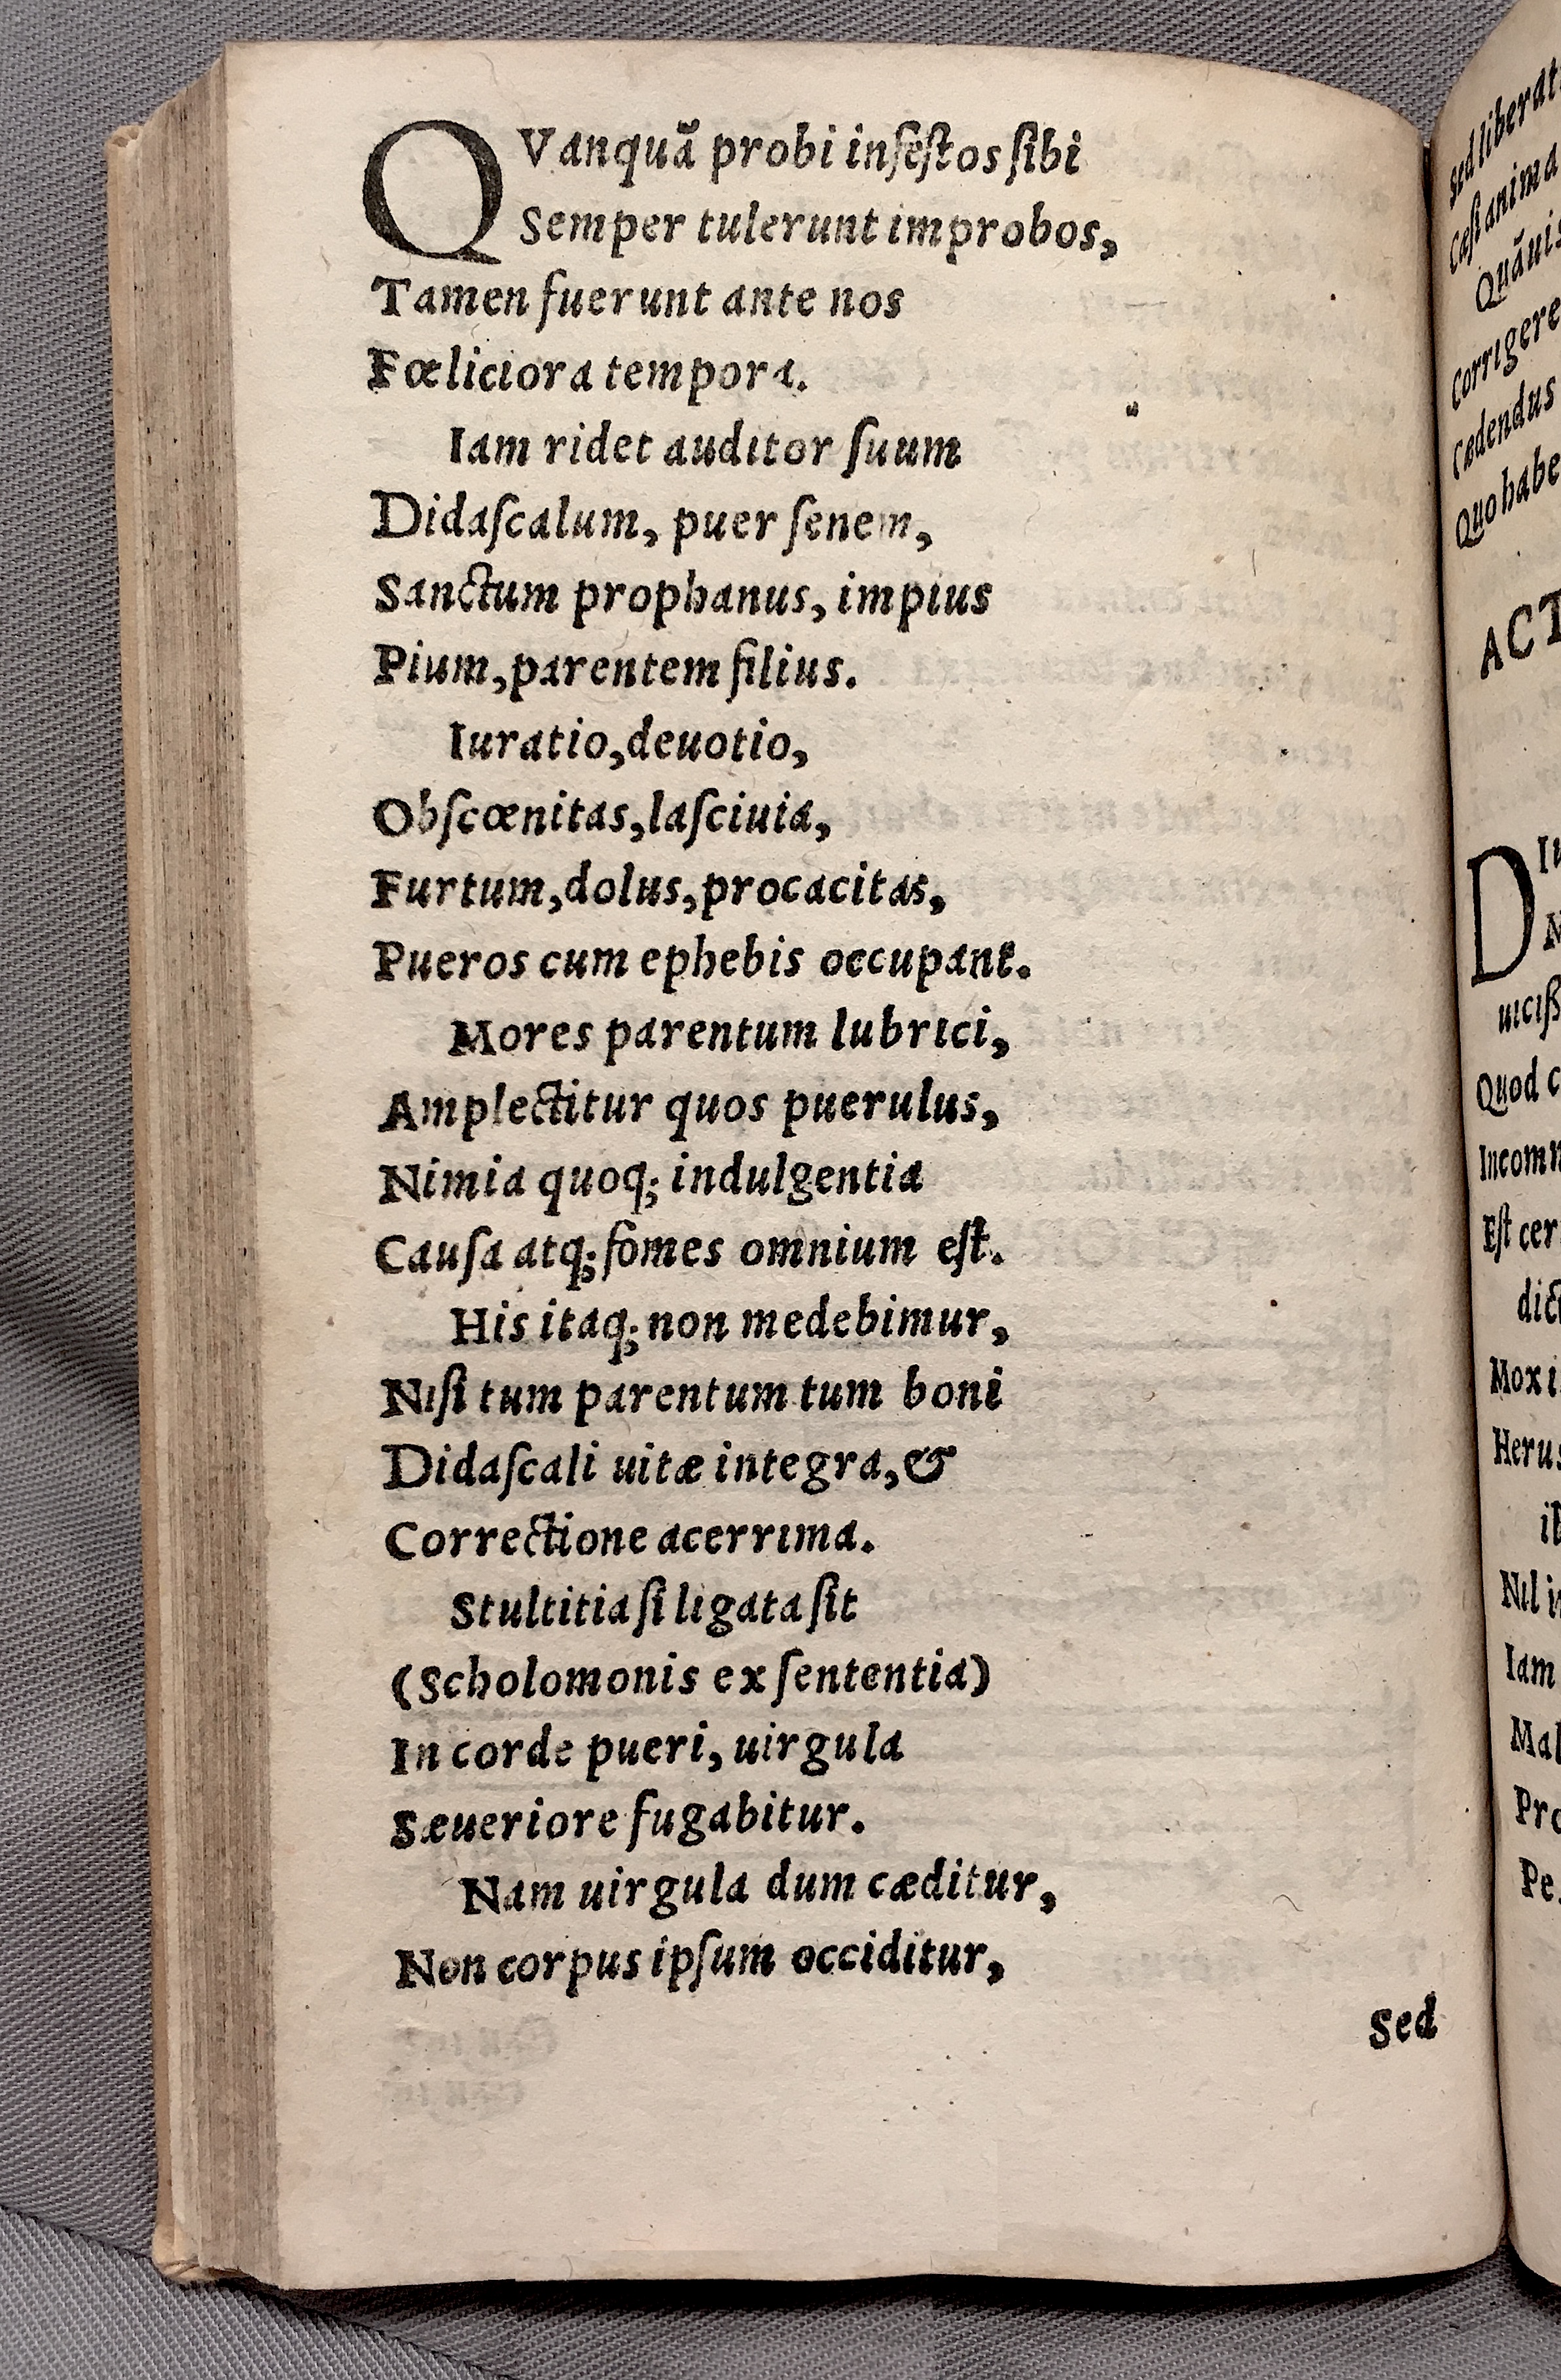 QVanquã probi infestos sibi
Semper tulerunt improbos,
Tamen fuerunt ante nos
Fœliciora tempora.
Iam ridet auditor suum
Didaſcalum, puer ſenem,
Sanctum prophanus, impius
Pium, parentem filius.
Iuratio, deuotio,
Obſcœnitas, laſciuia,
Furtum, dolus, procacitas,
Pueros cum ephebis occupant.
Mores parentum lubrici,
Amplectitur quos puerulus,
Nimia quoq; indulgentia
Cauſa atq; fomes omnium eſt.
His itaq; non medebimur,
Niſi tum parentum tum boni
Didaſcali uitæ integra, &
Correctione acerrima.
Stultitia ſi ligata ſit
(Scholomonis ex ſententia)
In corde pueri, uirgula
Sæueriore fugabitur.
Nam uirgula dum cæditur,
Non corpus ipſum occiditur,
Sed
Sed liberat
Caſt anima
Quãuis
Corrigere
Cædendus
Quo habe
ACT
D
Quod c
Eſt cer
Mox i
Herus
Nil i
Iam
Mal
Pro
Pe